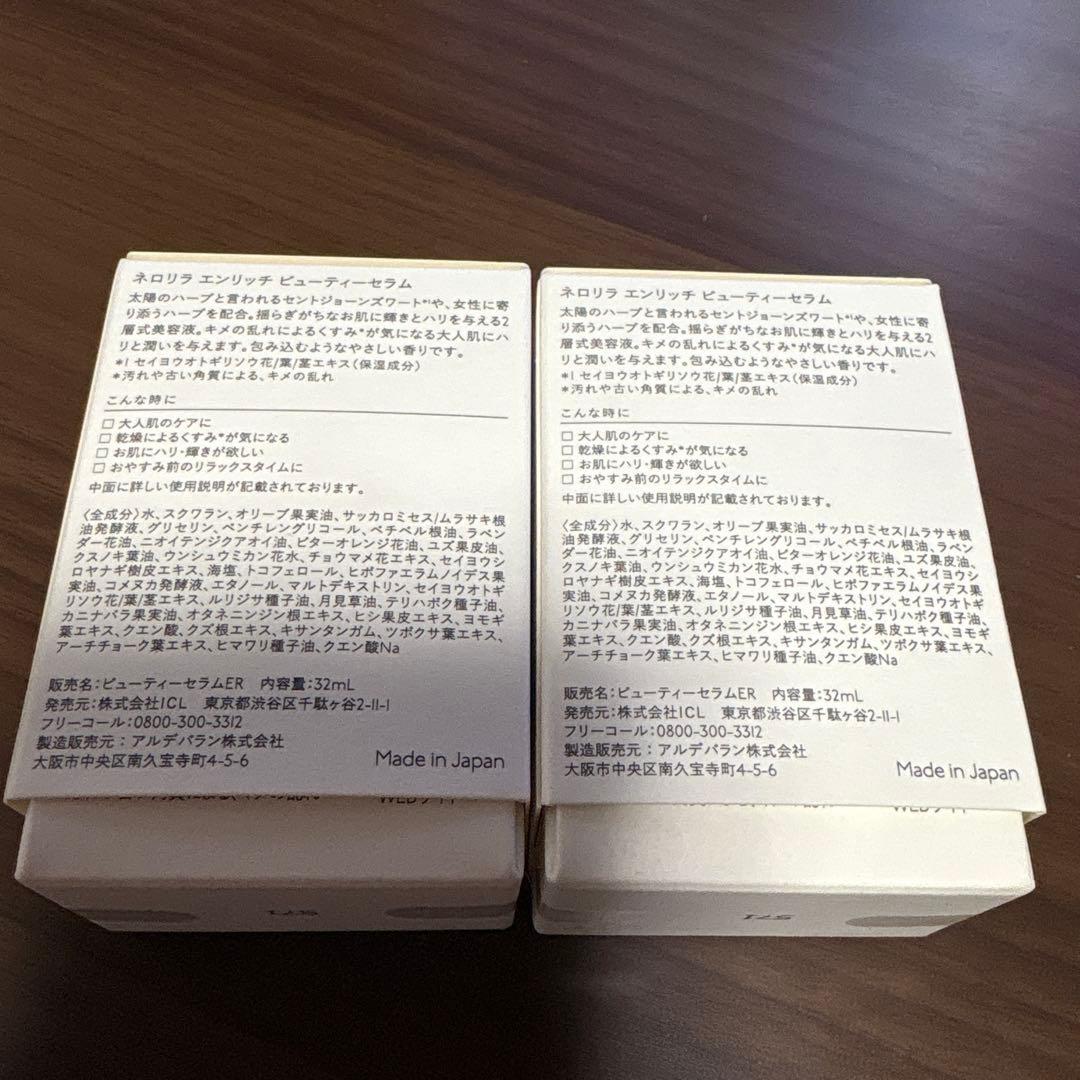 ネロリラ エンリッチ ビューティーセラム
太陽のハーブと言われるセントジョーンズワート*¹や、女性に寄
り添うハーブを配合。揺らぎがちなお肌に輝きとハリを与える2
層式美容液。キメの乱れによるくすみ*が気になる大人肌にハ
リと潤いを与えます。包み込むようなやさしい香りです。
*1 セイヨウオトギリソウ花/葉/茎エキス(保湿成分)
*汚れや古い角質による、キメの乱れ
こんな時に
□ 大人肌のケアに
□ 乾燥によるくすみ*が気になる
□ お肌にハリ・輝きが欲しい
□ おやすみ前のリラックスタイムに
中面に詳しい使用説明が記載されております。
〈全成分〉水、スクワラン、オリーブ果実油、サッカロミセス/ムラサキ根
油発酵液、グリセリン、ペンチレングリコール、ベチベル根油、ラベン
ダー花油、ニオイテンジクアオイ油、ビターオレンジ花油、ユズ果皮油、
クスノキ葉油、ウンシュウミカン花水、チョウマメ花エキス、セイヨウシ
ロヤナギ樹皮エキス、海塩、トコフェロール、ヒポファエラムノイデス果
実油、コメヌカ発酵液、エタノール、マルトデキストリン、セイヨウオトギ
リソウ花/葉/茎エキス、ルリジサ種子油、月見草油、テリハボク種子油、
カニナバラ果実油、オタネニンジン根エキス、ヒシ果皮エキス、ヨモギ
葉エキス、クエン酸、クズ根エキス、キサンタンガム、ツボクサ葉エキス、
アーチチョーク葉エキス、ヒマワリ種子油、クエン酸Na
販売名：ビューティーセラムER 内容量：32mL
発売元：株式会社ICL 東京都渋谷区千駄ヶ谷2-11-1
フリーコール：0800-300-3312
製造販売元：アルデバラン株式会社
大阪市中央区南久宝寺町4-5-6
Made in Japan
WEBサイト
571
ネロリラ エンリッチ ビューティーセラム
太陽のハーブと言われるセントジョーンズワート*¹や、女性に寄
り添うハーブを配合。揺らぎがちなお肌に輝きとハリを与える2
層式美容液。キメの乱れによるくすみ*が気になる大人肌にハ
リと潤いを与えます。包み込むようなやさしい香りです。
*1 セイヨウオトギリソウ花/葉/茎エキス(保湿成分)
*汚れや古い角質による、キメの乱れ
こんな時に
□ 大人肌のケアに
□ 乾燥によるくすみ*が気になる
□ お肌にハリ・輝きが欲しい
□ おやすみ前のリラックスタイムに
中面に詳しい使用説明が記載されております。
〈全成分〉水、スクワラン、オリーブ果実油、サッカロミセス/ムラサキ根
油発酵液、グリセリン、ペンチレングリコール、ベチベル根油、ラベン
ダー花油、ニオイテンジクアオイ油、ビターオレンジ花油、ユズ果皮油、
クスノキ葉油、ウンシュウミカン花水、チョウマメ花エキス、セイヨウシ
ロヤナギ樹皮エキス、海塩、トコフェロール、ヒポファエラムノイデス果
実油、コメヌカ発酵液、エタノール、マルトデキストリン、セイヨウオトギ
リソウ花/葉/茎エキス、ルリジサ種子油、月見草油、テリハボク種子油、
カニナバラ果実油、オタネニンジン根エキス、ヒシ果皮エキス、ヨモギ
葉エキス、クエン酸、クズ根エキス、キサンタンガム、ツボクサ葉エキス、
アーチチョーク葉エキス、ヒマワリ種子油、クエン酸Na
販売名：ビューティーセラムER 内容量：32mL
発売元：株式会社ICL 東京都渋谷区千駄ヶ谷2-11-1
フリーコール：0800-300-3312
製造販売元：アルデバラン株式会社
大阪市中央区南久宝寺町4-5-6
Made in Japan
571